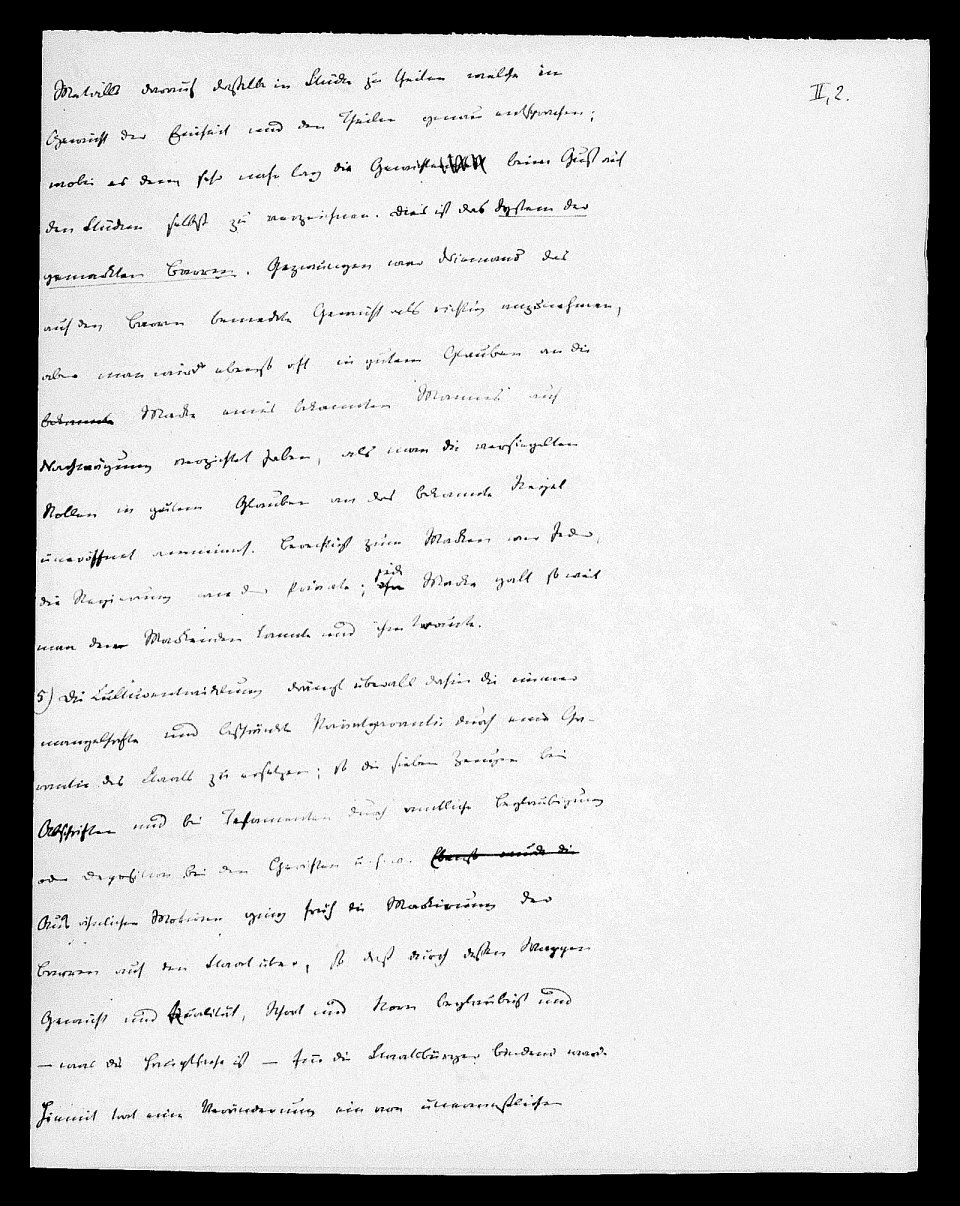 II, 2.
Metalle darauf dasselbe in Stücke zu theilen welche im
Gewicht der Einheit und den Theilen genau entsprachen;
wobei es denn sehr nahe lag die Gewichte beim Guß auf
den Stücken selbst zu verzeichnen. Dies ist das System der
gemarkten Barren. Gezwungen war Niemand das
auf den Barren bemerkte Gewicht als richtig anzunehmen,
aber man wird ebenso oft in gutem Glauben an die
bekannte Marke eines bekannten Mannes auf
Nachwägung verzichtet haben, als man die versiegelten
Rollen in gutem Glauben an das bekannte Siegel
uneröffnet annimmt. Berechtigt zum Marken war Jeder,
die Regierung wie der Private; jede Marke galt so weit
man den Markenden kannte und ihm traute.
5) Die Culturentwicklung drängt überall dahin die immer
mangelhafte und beschränkte Privatgarantie durch eine Ga-
rantie des Staats zu ersetzen; so die sieben Zeugen bei
Abschriften und bei Testamenten durch amtliche Beglaubigung
oder Deposition bei den Gerichten u.s.w. Ebenso wurde die
Aus ähnlichen Motiven ging früh die Markirung der
Barren auf den Staat über, so daß durch dessen Wappen
Gewicht und Qualität, Schrot und Korn beglaubigt und
— was die Hauptsache ist — für die Staatsbürger bindend ward.
Hiemit trat eine Veränderung ein von unermeßlichen